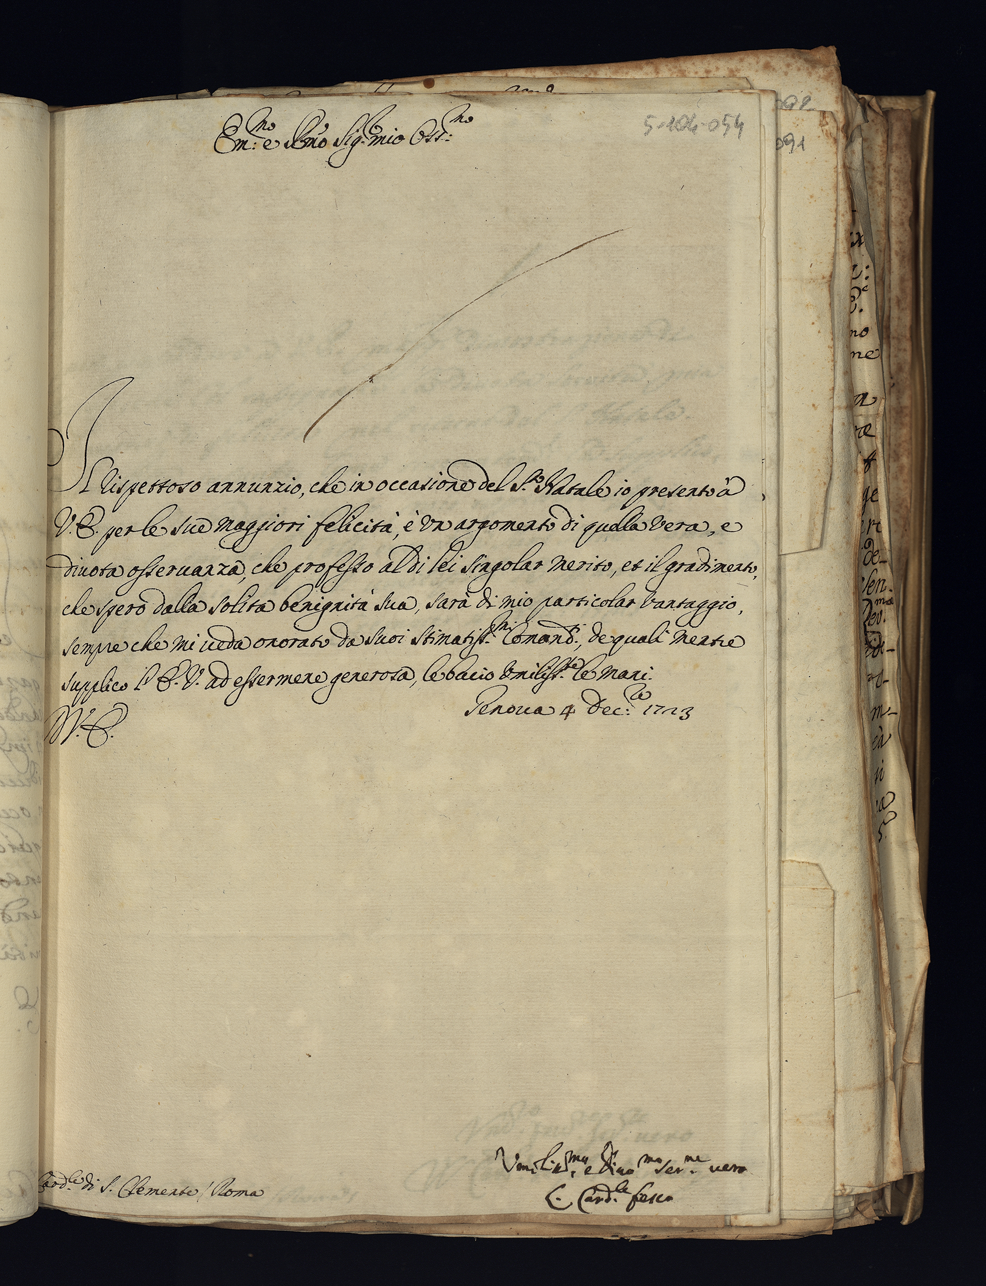 5-104-054
Em:mo e Rmo Sig.r mio Oss:mo
Il rispettoso annunzio, che in occasione del S.to Natale io presento à
V. E. per le sue maggiori felicità, è un argomento di quella vera, e
divota osservanza, che professo al di lei singolar merito, et il gradimento,
che spero dalla solita benignità sua, sarà di mio particolar vantaggio,
sempre che mi veda onorato da suoi stimatiss:mi Comandi, de quali mentre
supplico l'E. V. ad essermene generosa, le bacio umiliss.te le mani.
Genova 4 Dec:re 1723
V. E.
Card.le di S. Clemente / Roma
Umiliss.mo, e Divo mo Ser.ne vero
L. Card.le fesco